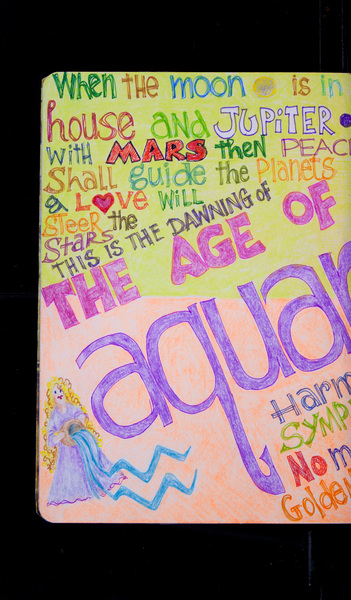 When the moon is in
house and JUPiTER
with MARS then PEAC
Shall guide the Planets
& LOve WiLL
STEER the
Stars
THIS IS THE DAWNING OF
THE AGE OF
aquar
Harm
SYMP
No m
Golden